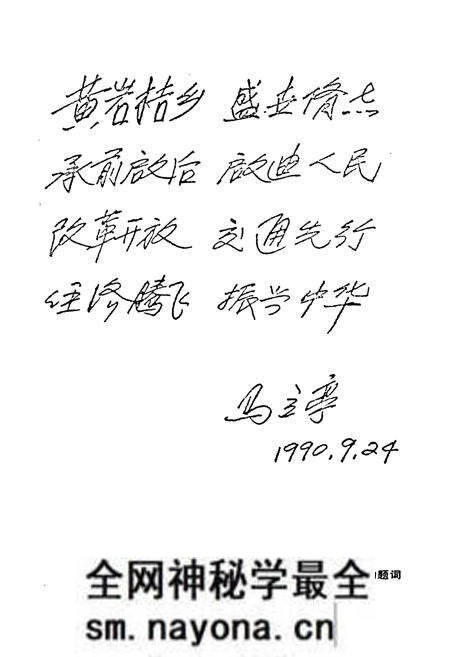 黄岩桔乡 盛世修志
承前启后 启迪人民
改革开放 交通先行
经济腾飞 振兴中华
马立亭
1990.9.24
题词
全网神秘学最全
sm.nayona.cn